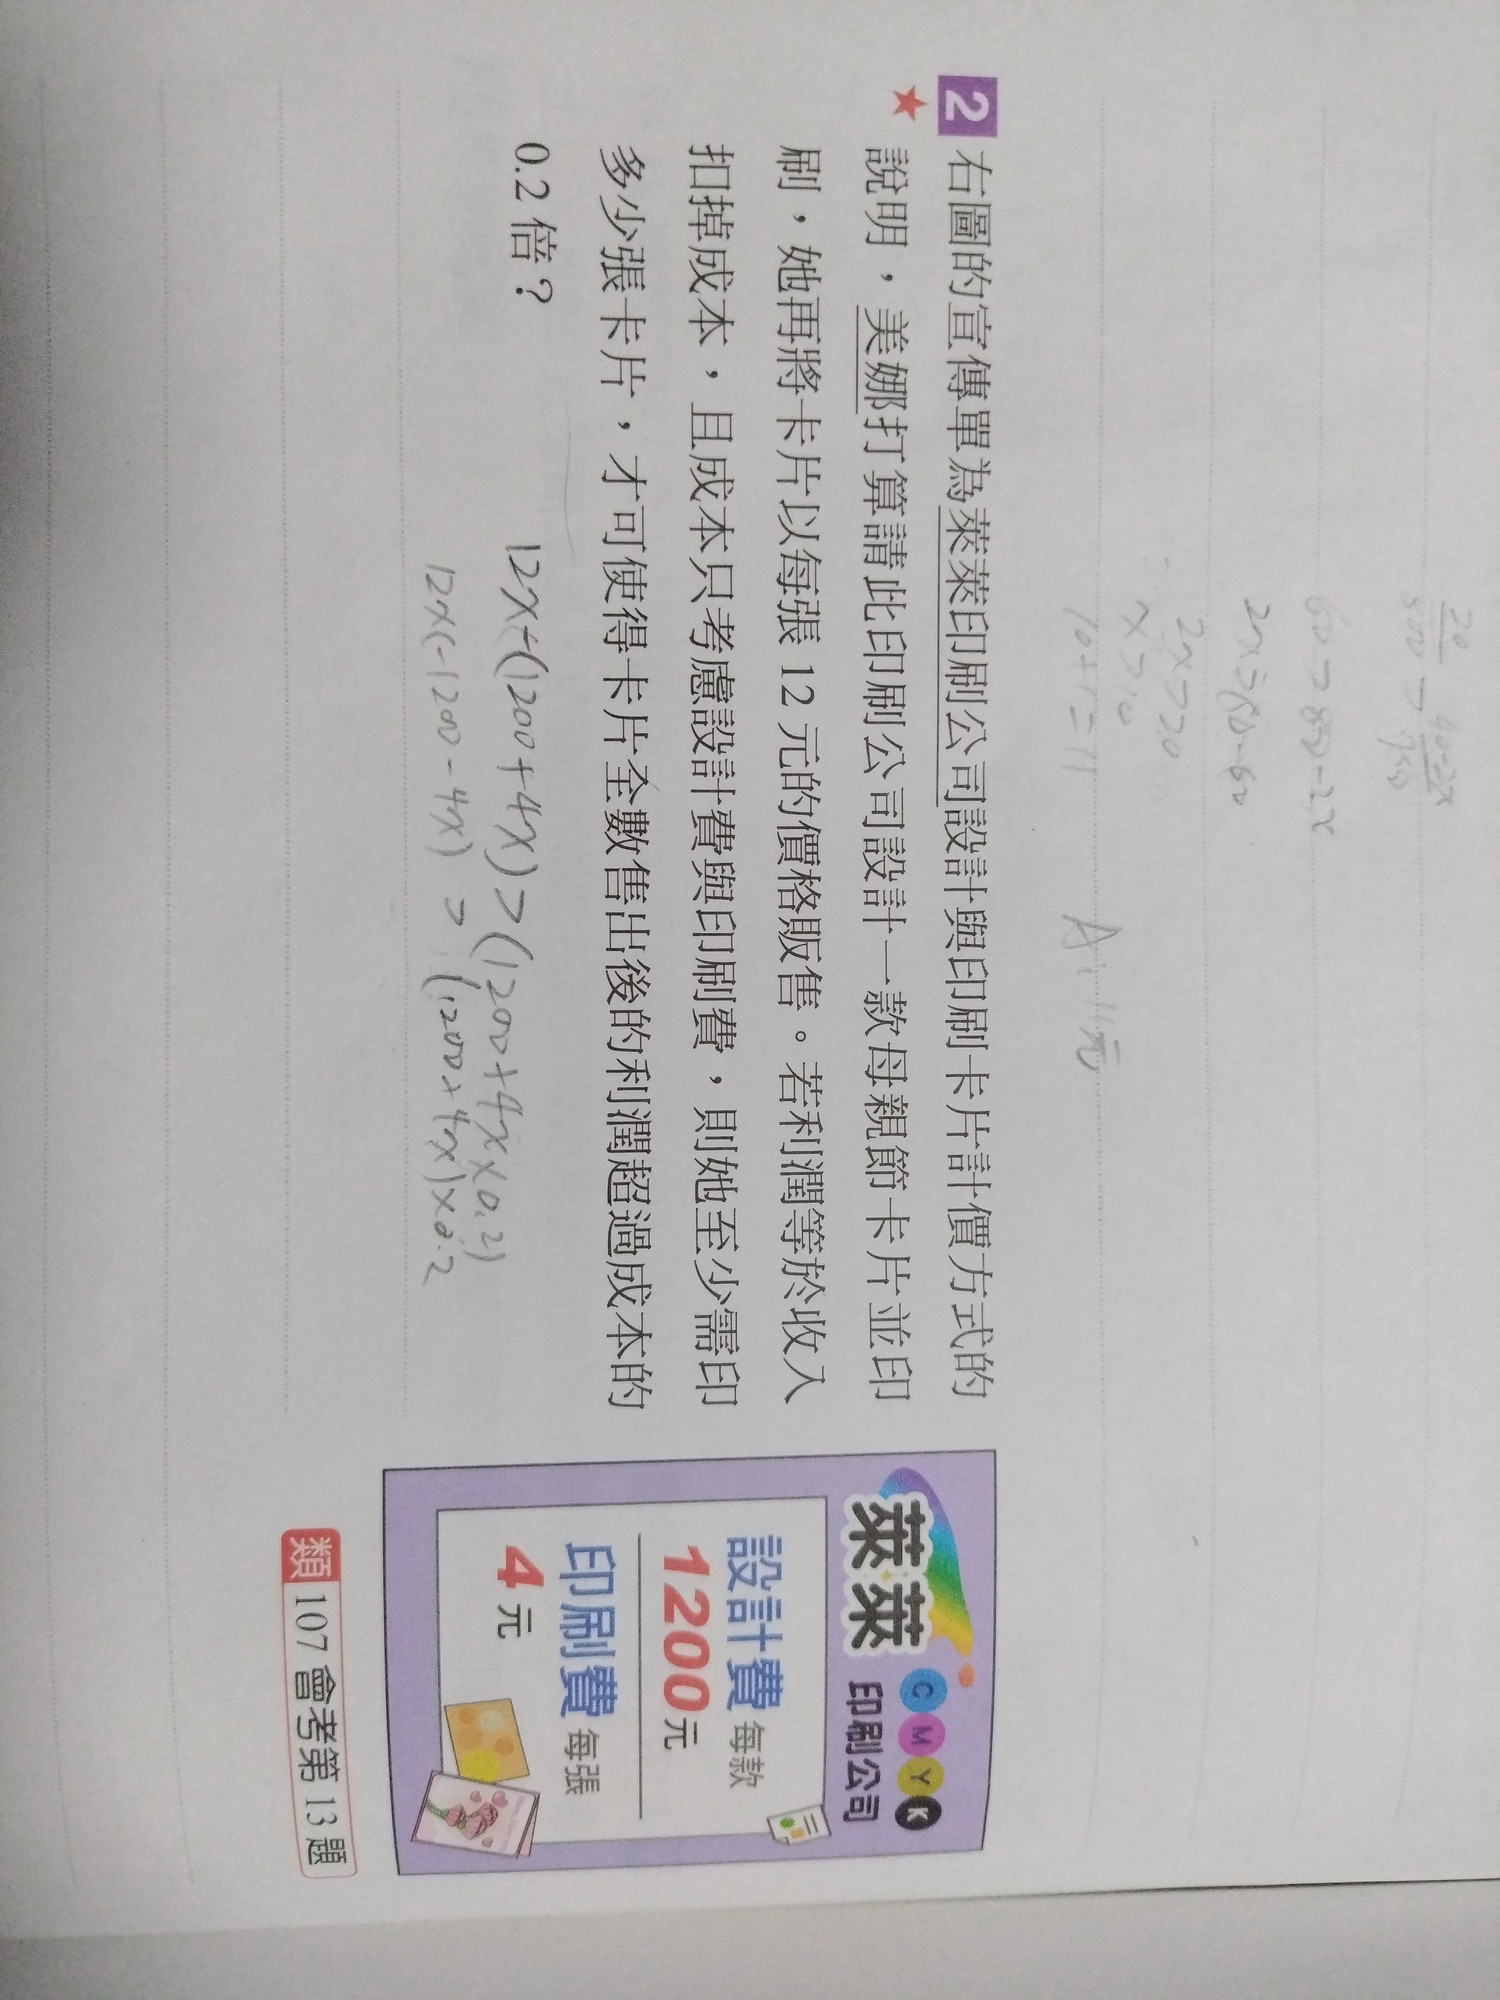 20/500 > 40-2x/750
60 > 80-2x
2x > 80-60
2x > 20
x > 10
10+1=11
A: 11元
2 右圖的宣傳單為萊萊印刷公司設計與印刷卡片計價方式的
★ 說明，美娜打算請此印刷公司設計一款母親節卡片並印
刷，她再將卡片以每張 12 元的價格販售。若利潤等於收入
扣掉成本，且成本只考慮設計費與印刷費，則她至少需印
多少張卡片，才可使得卡片全數售出後的利潤超過成本的
0.2 倍？
12x-(1200+4x)>(1200+4x×0.2)
12x(-1200-4x) > (1200+4x)×0.2
萊萊 CMYK 印刷公司
設計費 每款
1200元
印刷費 每張
4元
類 107 會考第 13 題